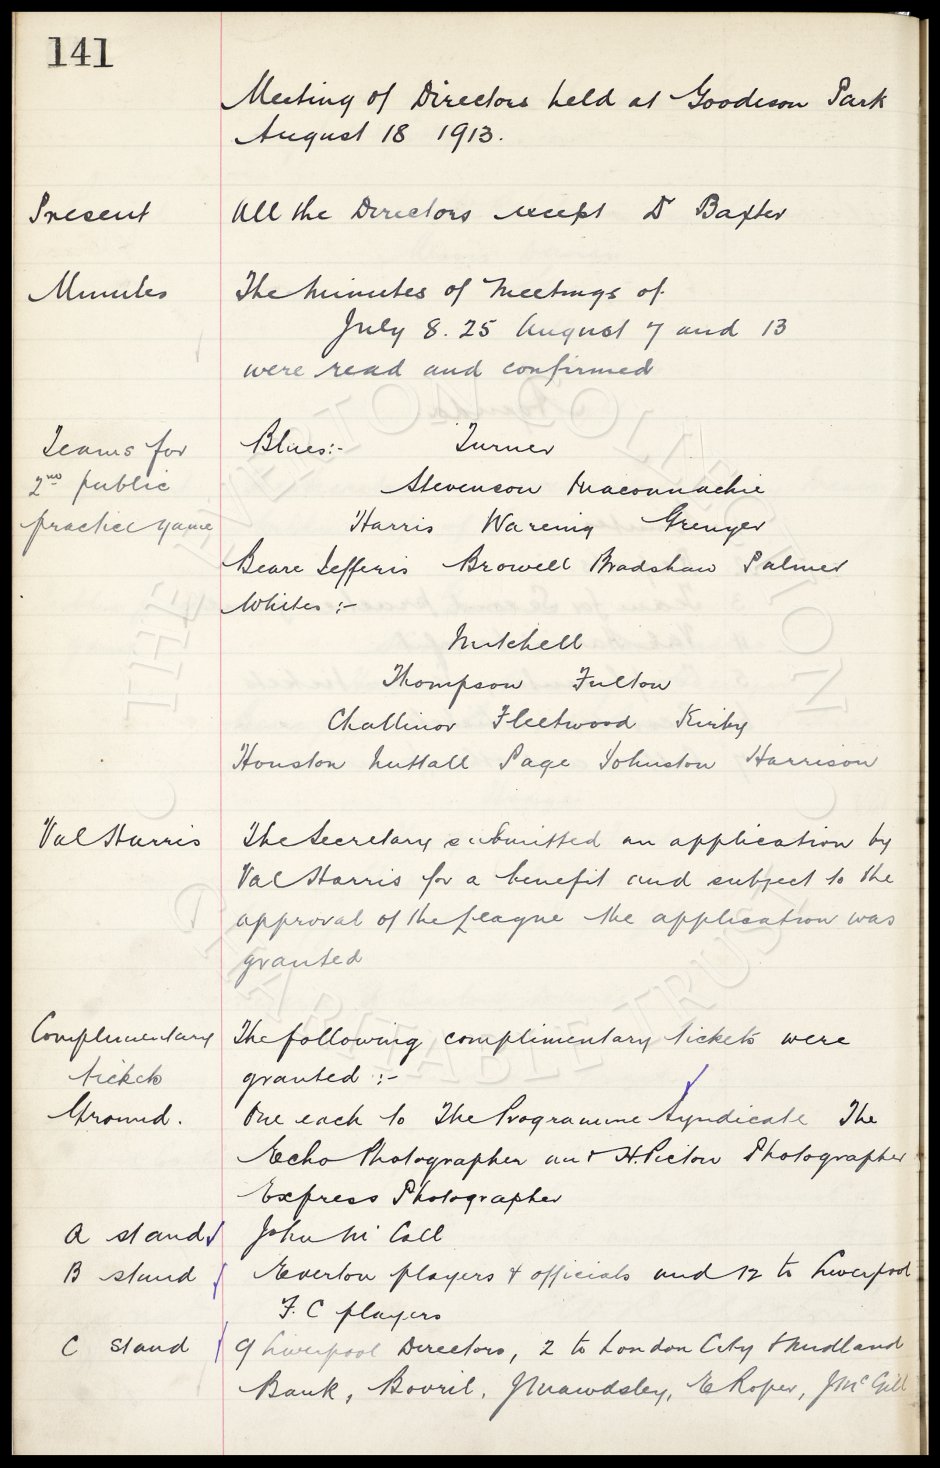 141
Meeting of Directors held at Goodison Park
August 18 1913.
Present All the Directors except Dr Baxter
Minutes The Minutes of Meetings of
July 8. 25 August 7 and 13
were read and confirmed
Teams for Blues:- Turner
2nd public Stevenson Maconnachie
practice game Harris Wareing Grenyer
Beare Jefferis Browell Bradshaw Palmer
Whites:-
Mitchell
Thompson Fulton
Challinor Fleetwood Kirby
Houston Nuttall Page Johnston Harrison
Val Harris The Secretary submitted an application by
Val Harris for a benefit and subject to the
approval of the League the application was
granted
Complimentary The following complimentary tickets were
tickets granted :-
Ground. One each to The Programme Syndicate The
Echo Photographer and H. Picton Photographer
Express Photographer
A stand John Mc Call
B stand Everton players & officials and 12 to Liverpool
F.C players
C stand 9 Liverpool Directors, 2 to London City & Midland
Bank, Bovril, J Mawdsley, E Roper, J Mc Gill
THE EVERTON COLLECTION
CHARITABLE TRUST